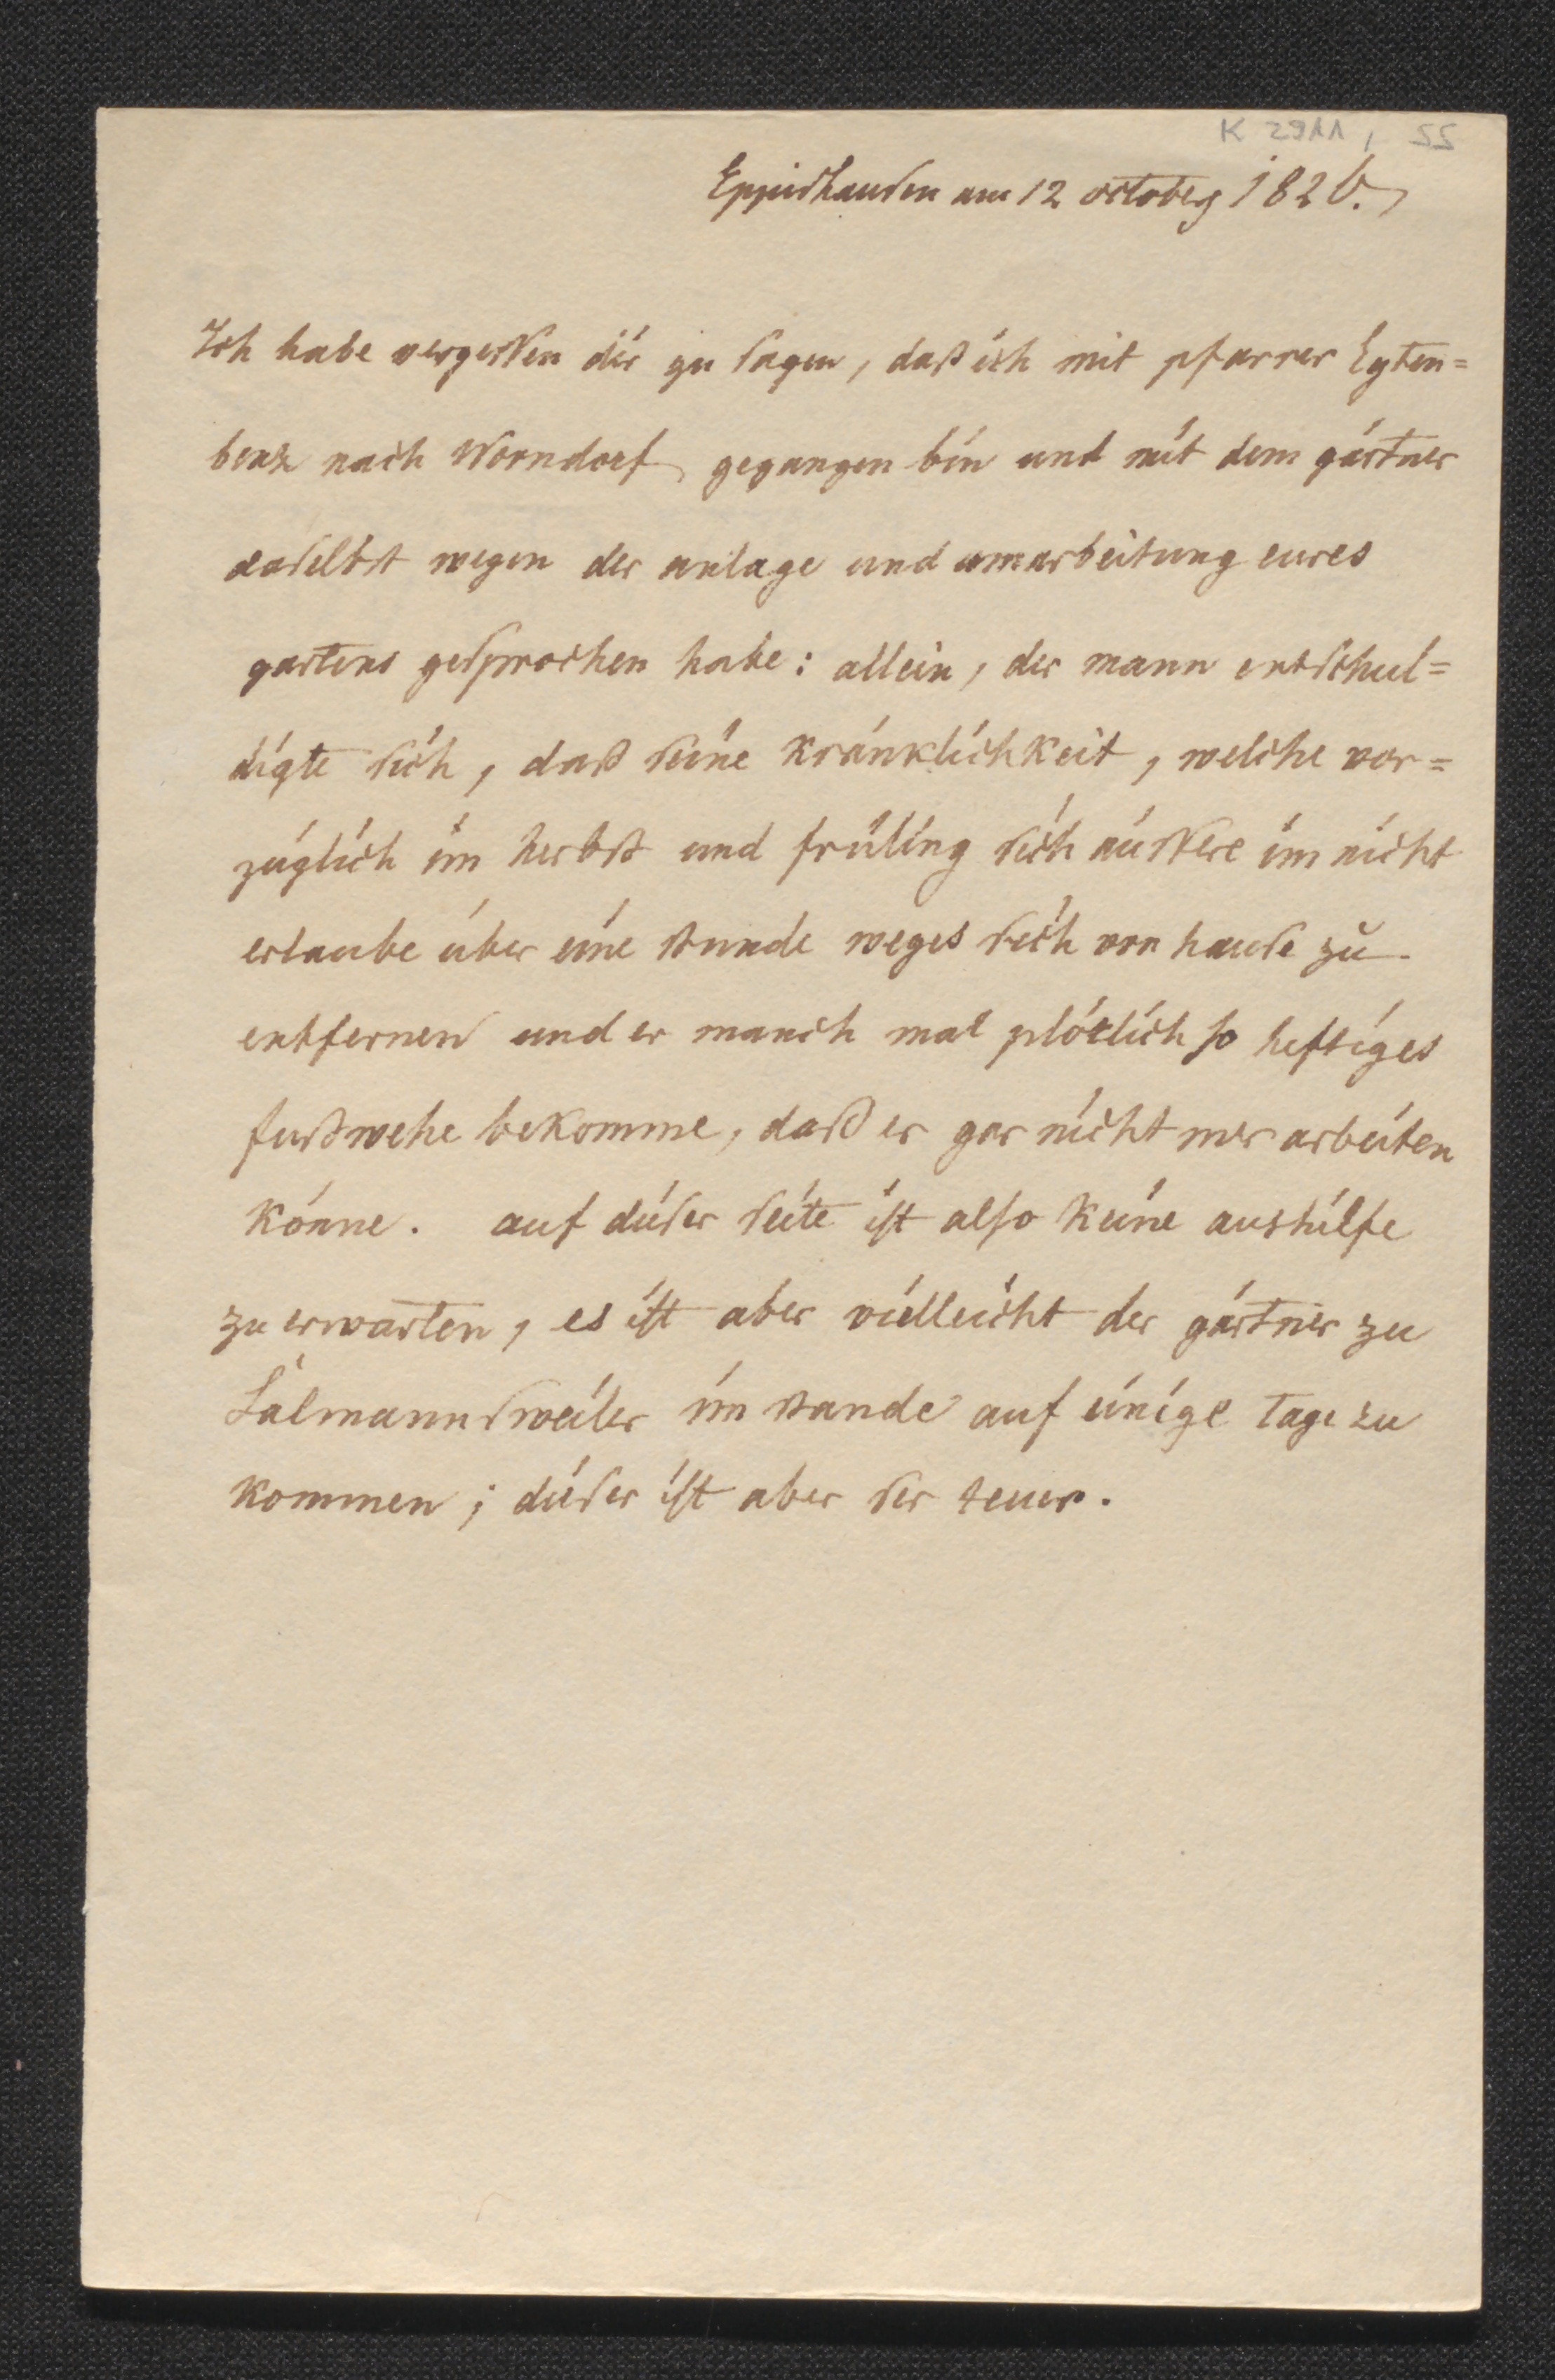 K 2911, 55
Eppishausen am 12 october 1826.
Ich habe vergessen dir zu sagen, daß ich mit pfarrer Eyten=
benz nach Worndorf gegangen bin und mit dem gärtner
daselbst wegen der anlage und umarbeitung eures
gartens gesprochen habe: allein, der mann entschul=
digte sich, daß seine kränklichkeit, welche vor=
züglich im herbst und früling sich äussere im nicht
erlaube über eine stunde weges sich von hause zu
entfernen und er manch mal plötlich so heftiges
fußwehe bekomme, daß er gar nicht mer arbeiten
könne. auf diser seite ist also keine aushilfe
zu erwarten, es ist aber villeicht der gärtner zu
Salmannsweiler im stande auf einige tage zu
kommen; diser ist aber ser teuer.